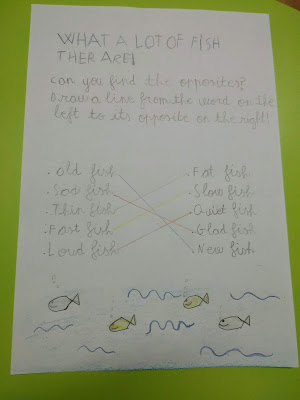 WHAT A LOT OF FISH
THER ARE!
Can you find the opposites?
Draw a line from the word on the
left to its opposite on the right!
. Old fish . Fat fish
. Sad fish . Slow fish
. Thin fish . Quiet fish
. Fast fish . Glad fish
. Loud fish . New fish